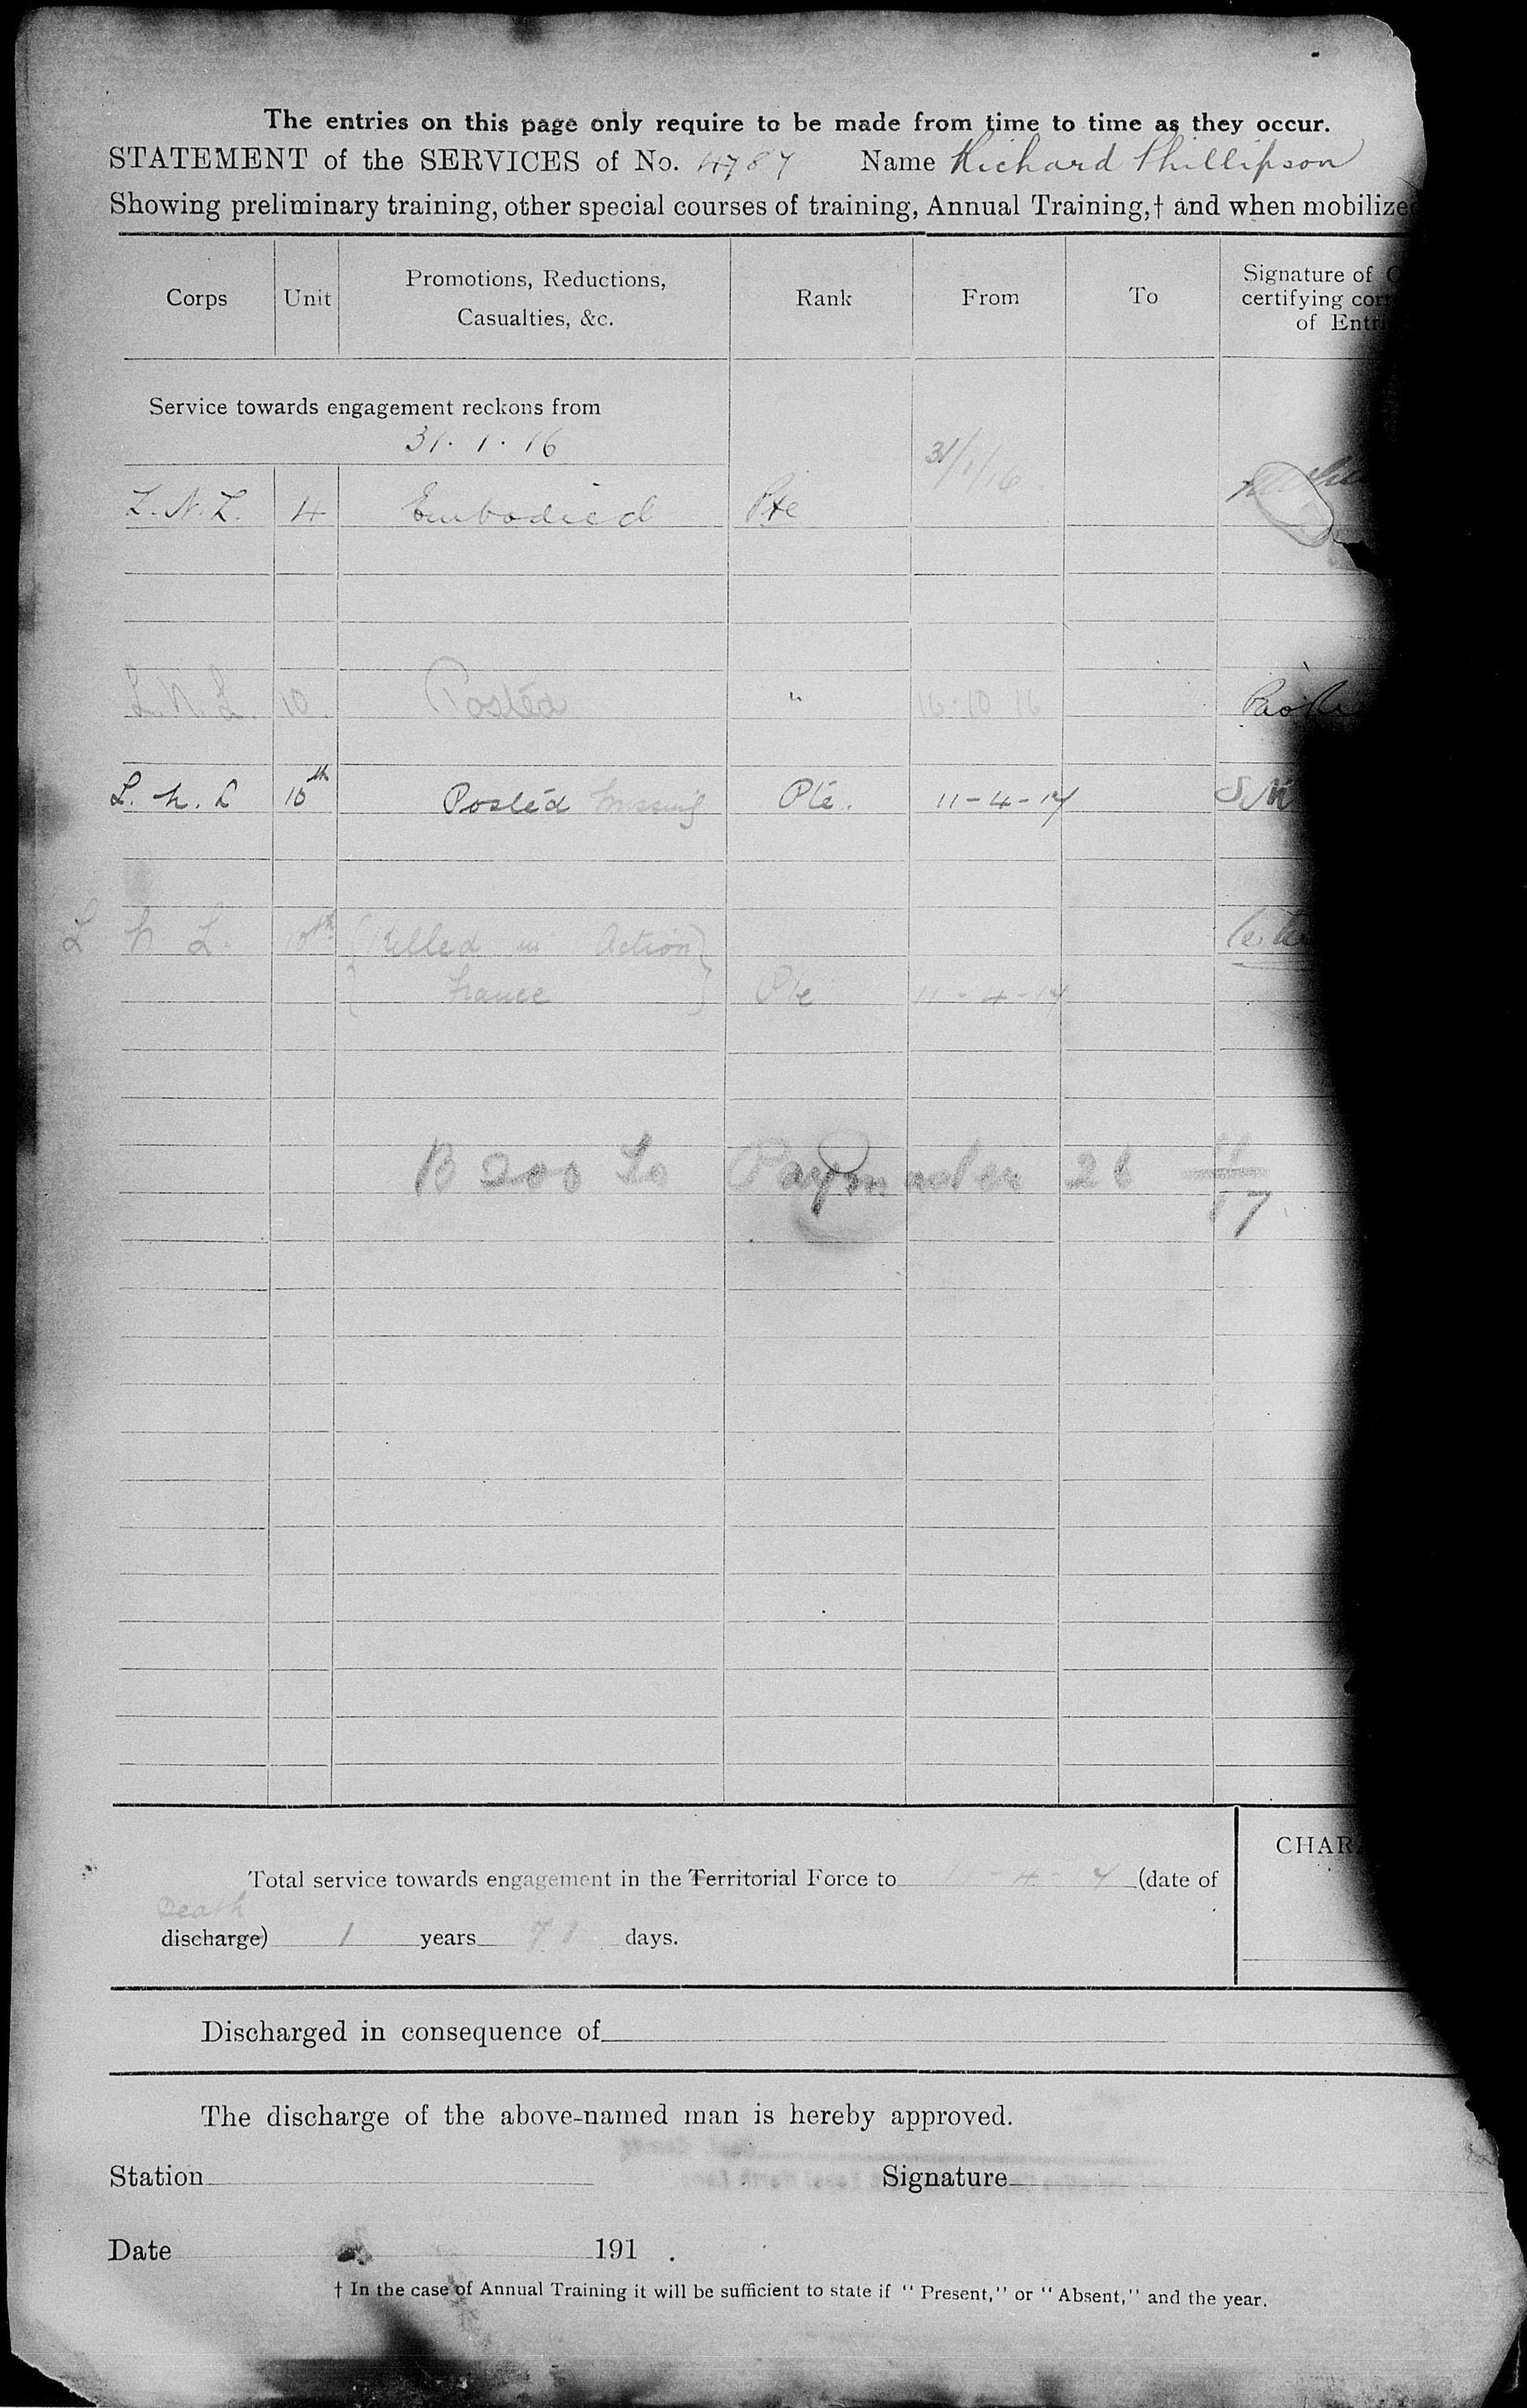 The entries on this page only require to be made from time to time as they occur.
STATEMENT of the SERVICES of No. 4787 Name Richard Phillipson
Showing preliminary training, other special courses of training, Annual Training,† and when mobilized
Corps Unit Promotions, Reductions, Casualties, &c. Rank From To Signature of certifying of
Service towards engagement reckons from
31 . 1 . 16
31/1/16
L.N.L. 4 Embodied Pte
L.N.L. 10 Posted " 16-10-16
L.N.L 10th Posted Missing Pte. 11-4-17
L N L. 10th (Killed in Action)
France Pte 11-4-17
B 200 to Paymaster 26
17
CHAR
Total service towards engagement in the Territorial Force to 4 - 7 (date of
Death
discharge) 1 years 71 days.
Discharged in consequence of
The discharge of the above-named man is hereby approved.
Station Signature
Date 191 .
† In the case of Annual Training it will be sufficient to state if "Present," or "Absent," and the year.